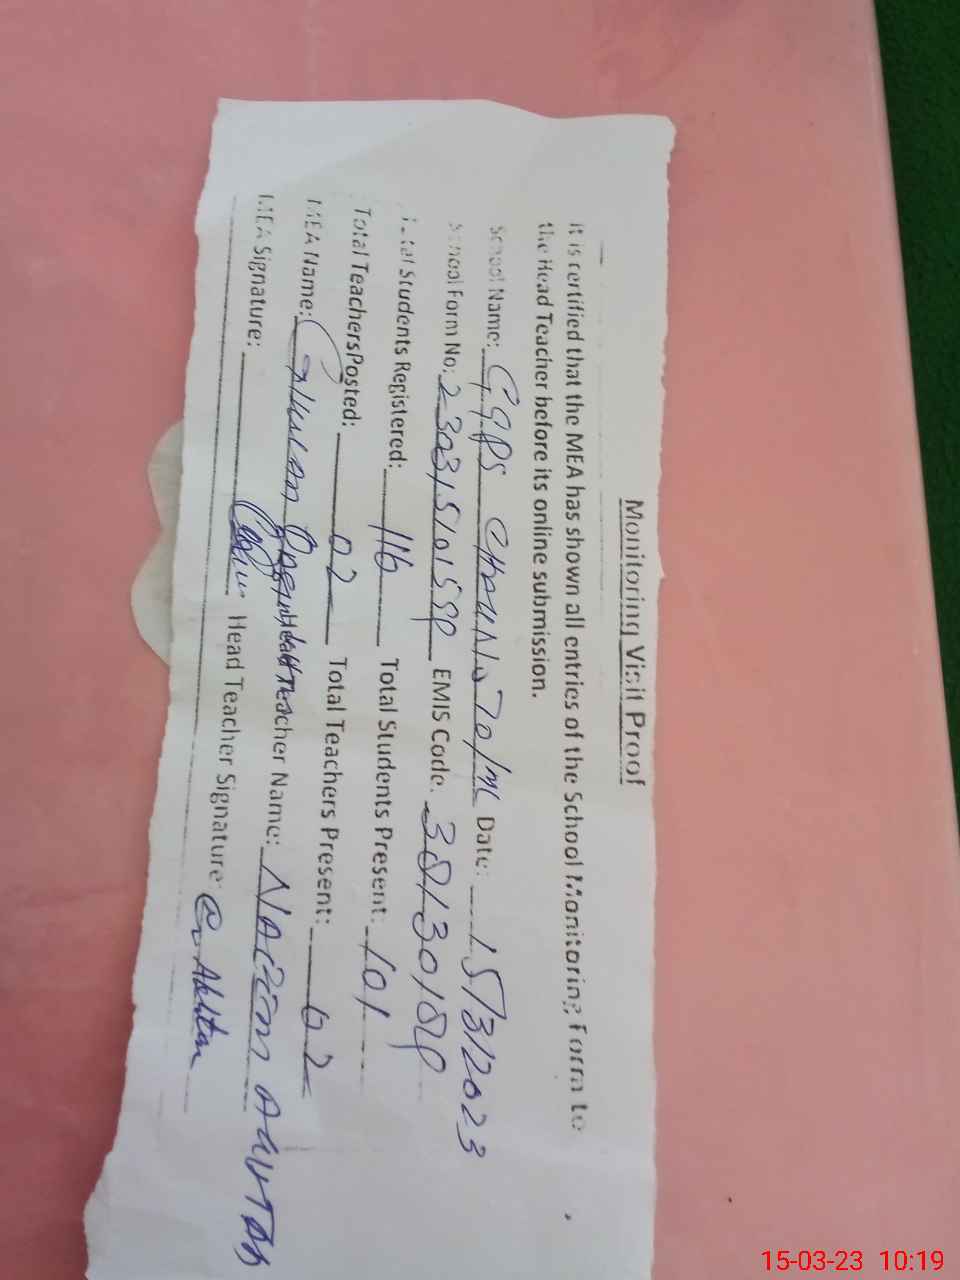 Monitoring Visit Proof
It is certified that the MEA has shown all entries of the School Monitoring Form to
the Head Teacher before its online submission.
School Name: GGPS Date: 15/3/2023
School Form No: EMIS Code. 
Total Students Registered: 116 Total Students Present: 101
Total TeachersPosted: 02 Total Teachers Present: 02
MEA Name: Ghulam Head Teacher Name: Nazem Akhtar
MEA Signature: Head Teacher Signature: Akhtar
15-03-23 10:19